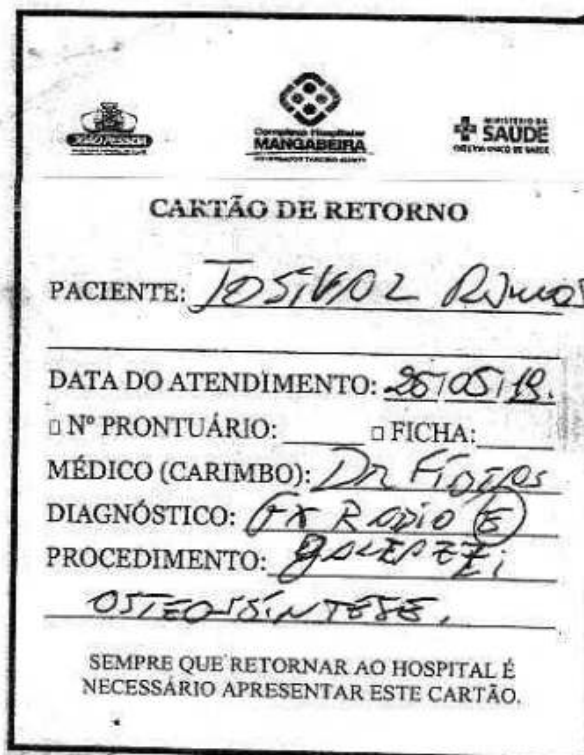 JOÃO PESSOA
Complexo Hospitalar
MANGABEIRA
GOVERNADOR TARCISIO BURITY
MINISTÉRIO DA
SAÚDE
CARTÃO DE RETORNO
PACIENTE: JOSIVAL Ramos
DATA DO ATENDIMENTO: 25/05/19.
□ Nº PRONTUÁRIO: ______ □ FICHA: ______
MÉDICO (CARIMBO): Dr
DIAGNÓSTICO: FX RADIO E
PROCEDIMENTO: GALEAZZI
OSTEOSSÍNTESE.
SEMPRE QUE RETORNAR AO HOSPITAL É
NECESSÁRIO APRESENTAR ESTE CARTÃO.